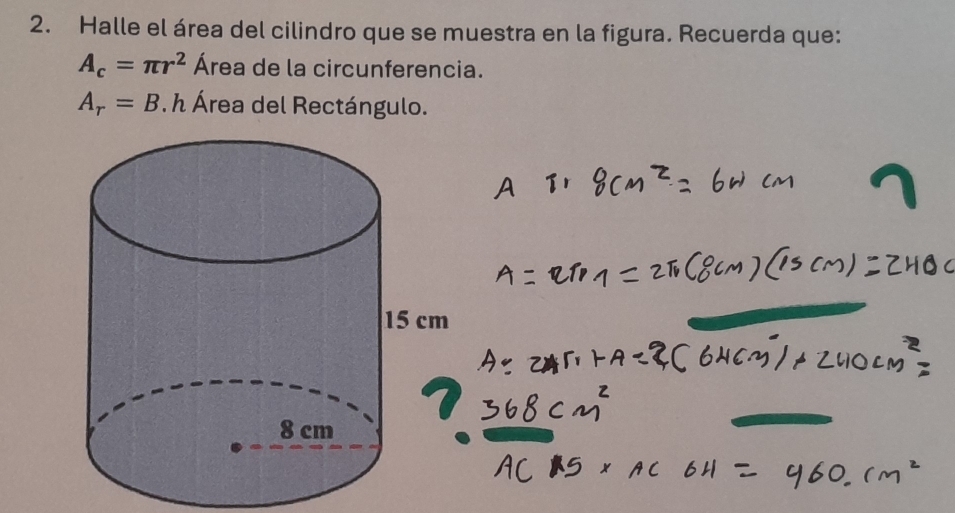 2. Halle el área del cilindro que se muestra en la figura. Recuerda que:
A_c = πr² Área de la circunferencia.
A_r = B.h Área del Rectángulo.
A π 8cm² = 64 cm
A = 2π = 2π(8cm)(15cm) = 240c
15 cm
A = 2 + A = 2(64cm²) + 240cm² =
? 368cm²
8 cm
AC 15 x AC 64 = 960.cm²